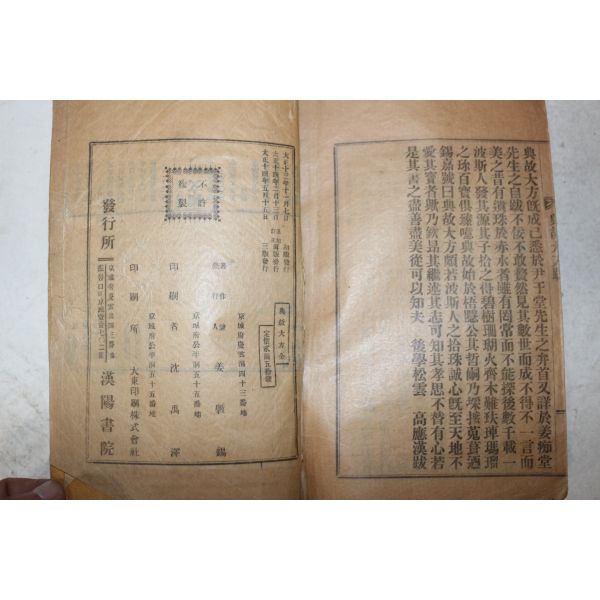 典故大方既成已悉於尹于堂先生之弁首又詳於姜痴堂
先生之自跋不佞不敢贅然見其數世而成不得不一言而
美之昔有遺珠於赤水者雖有罔象而不能探後數千載一
波斯人發其源其子拾之得碧樹珊瑚火齊木難玞琿瑪瑠
之珠百寶俱臻噫典故始於梧
錫嘉號曰典故大方頗若波斯人之拾珠誠心既至天地不
愛其寶者歟乃欽其繼述其志可知其孝思不替有心若
是其書之盡善盡美從可以知夫 後學松雲 高應漢跋
大正十三年十二月七日 初版發行
大正十四年二月十三日 再版發行
大正十四年五月十五日 三版發行
不許
複製
典故大方全
定價貳圓五拾錢
著作兼
發行人 姜斅錫
京城府公平洞五十五番地
印刷者 沈禹澤
京城府公平洞五十五番地
印刷所 大東印刷株式會社
發行所 漢陽書院